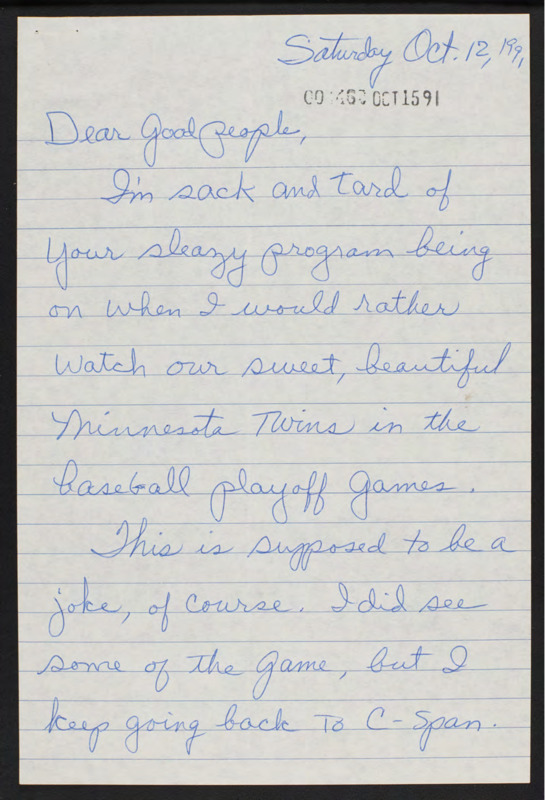 Saturday Oct. 12, 1991
OCT1591
Dear Good people,
I'm sack and tard of
your sleazy program being
on when I would rather
watch our sweet, beautiful
Minnesota Twins in the
baseball playoff games.
This is supposed to be a
joke, of course. I did see
some of the game, but I
keep going back to C-Span.